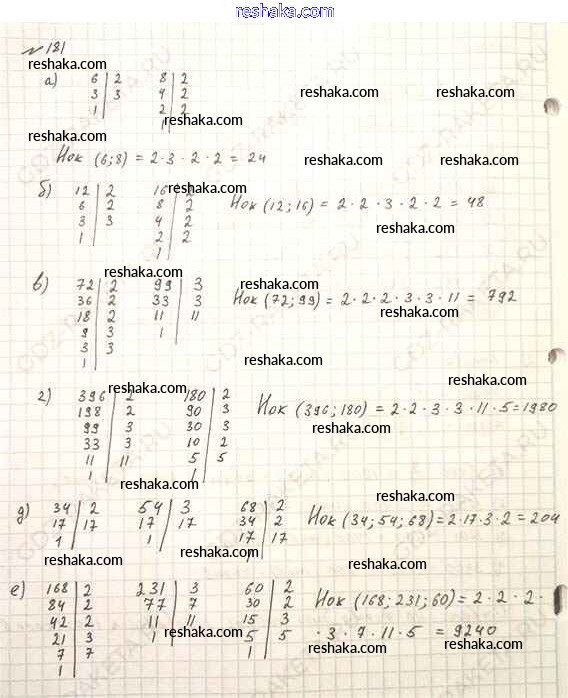 reshaka.com
№ 181
reshaka.com
а) 6 | 2 8 | 2
3 | 3 4 | 2 reshaka.com reshaka.com
1 2 | 2
1 reshaka.com
reshaka.com
Нок (6; 8) = 2 · 3 · 2 · 2 = 24
reshaka.com reshaka.com
б) 12 | 2 16 | 2 reshaka.com
6 | 2 8 | 2 Нок (12; 16) = 2 · 2 · 3 · 2 · 2 = 48
3 | 3 4 | 2 reshaka.com
1 2 | 2
1
reshaka.com
в) 72 | 2 99 | 3 reshaka.com
36 | 2 33 | 3 Нок (72; 99) = 2 · 2 · 2 · 3 · 3 · 11 = 792
18 | 2 11 | 11 reshaka.com
9 | 3 1
3 | 3
1 reshaka.com
reshaka.com
г) 396 | 2 180 | 2 reshaka.com
198 | 2 90 | 3 Нок (396; 180) = 2 · 2 · 3 · 3 · 11 · 5 = 1980
99 | 3 30 | 3 reshaka.com
33 | 3 10 | 2
11 | 11 5 | 5
1 1
reshaka.com
reshaka.com
д) 34 | 2 54 | 3 68 | 2
17 | 17 17 | 17 34 | 2 Нок (34; 54; 68) = 2 · 17 · 3 · 2 = 204
1 1 17 | 17
reshaka.com reshaka.com
reshaka.com
е) 168 | 2 231 | 3 60 | 2
84 | 2 77 | 7 30 | 2 Нок (168; 231; 60) = 2 · 2 · 2 ·
42 | 2 11 | 11 15 | 3
21 | 3 1 5 | 5 · 3 · 7 · 11 · 5 = 9240
7 | 7 reshaka.com 1 reshaka.com reshaka.com
1